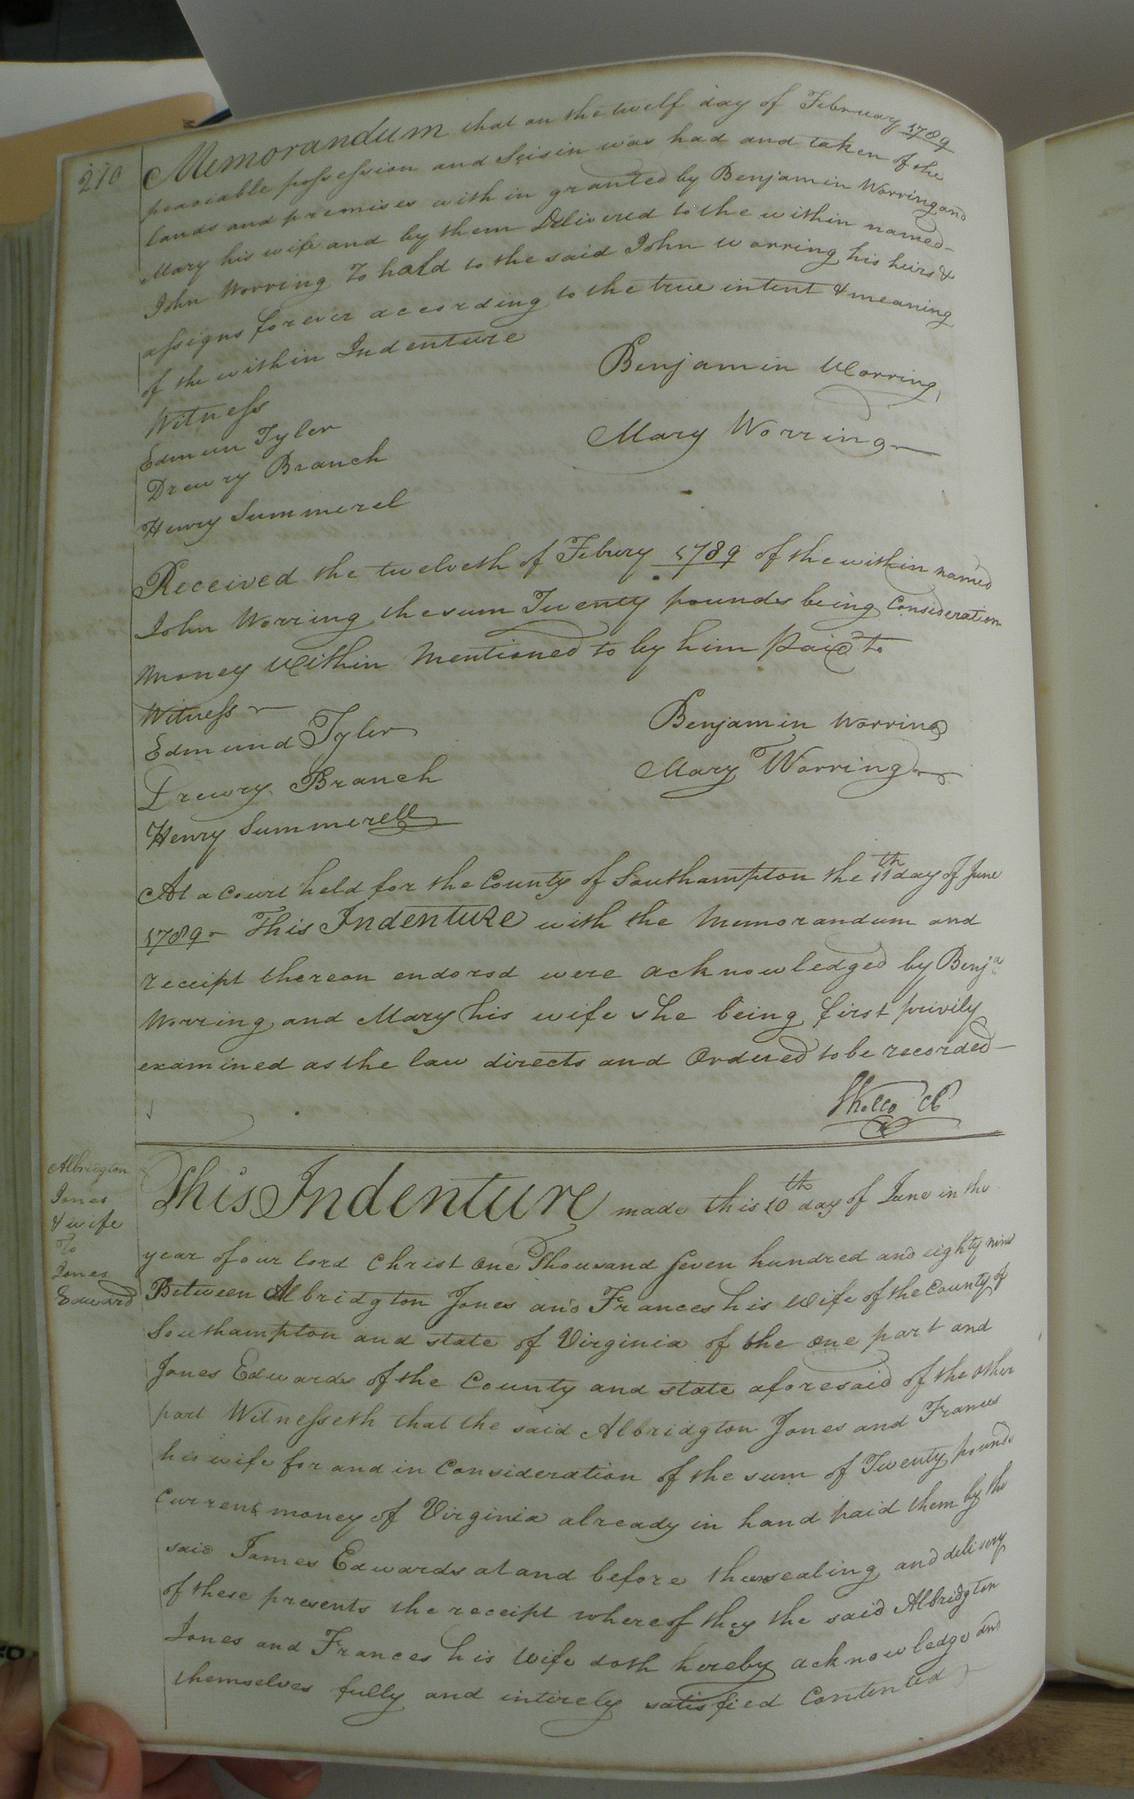 270
Memorandum that on the twelf day of February 1789
peaceable possession and Seisin was had and taken of the
lands and premises with in granted by Benjamin Worring and
Mary his wife and by them Delivered to the within named
John Worring To hold to the said John Worring his heirs &
assigns forever according to the true intent & meaning
of the within Indenture
Benjamin Worring
Witness
Mary Worring
Edmun Tyler
Drewry Branch
Henry Summerel
Received the twelveth of Febury 1789 of the within named
John Worring the sum Twenty pounds being Consideration
money Within Mentioned to by him paid to
Witness
Benjamin Worring
Edmund Tyler
Mary Worring
Drewry Branch
Henry Summerell
At a Court held for the County of Southampton the 11th day of June
1789 This Indenture with the Memorandum and
receipt thereon endorsd were acknowledged by Benja
Worring and Mary his wife she being first privily
examined as the law directs and Ordered to be recorded
Albridgton
Jones
& wife
To
Jones
Edward
This Indenture made this 10th day of June in the
year of our lord Christ One Thousand Seven hundred and eighty nine
Between Albridgton Jones and Frances his Wife of the County of
Southampton and state of Virginia of the one part and
Jones Edwards of the County and state aforesaid of the other
part Witnesseth that the said Albridgton Jones and Frances
his wife for and in Consideration of the sum of Twenty pounds
Current money of Virginia already in hand paid them by the
said James Edwards at and before the sealing and delivery
of these presents the receipt whereof they the said Albridgton
Jones and Frances his Wife doth hereby acknowledge and
themselves fully and intirely satisfied Contented